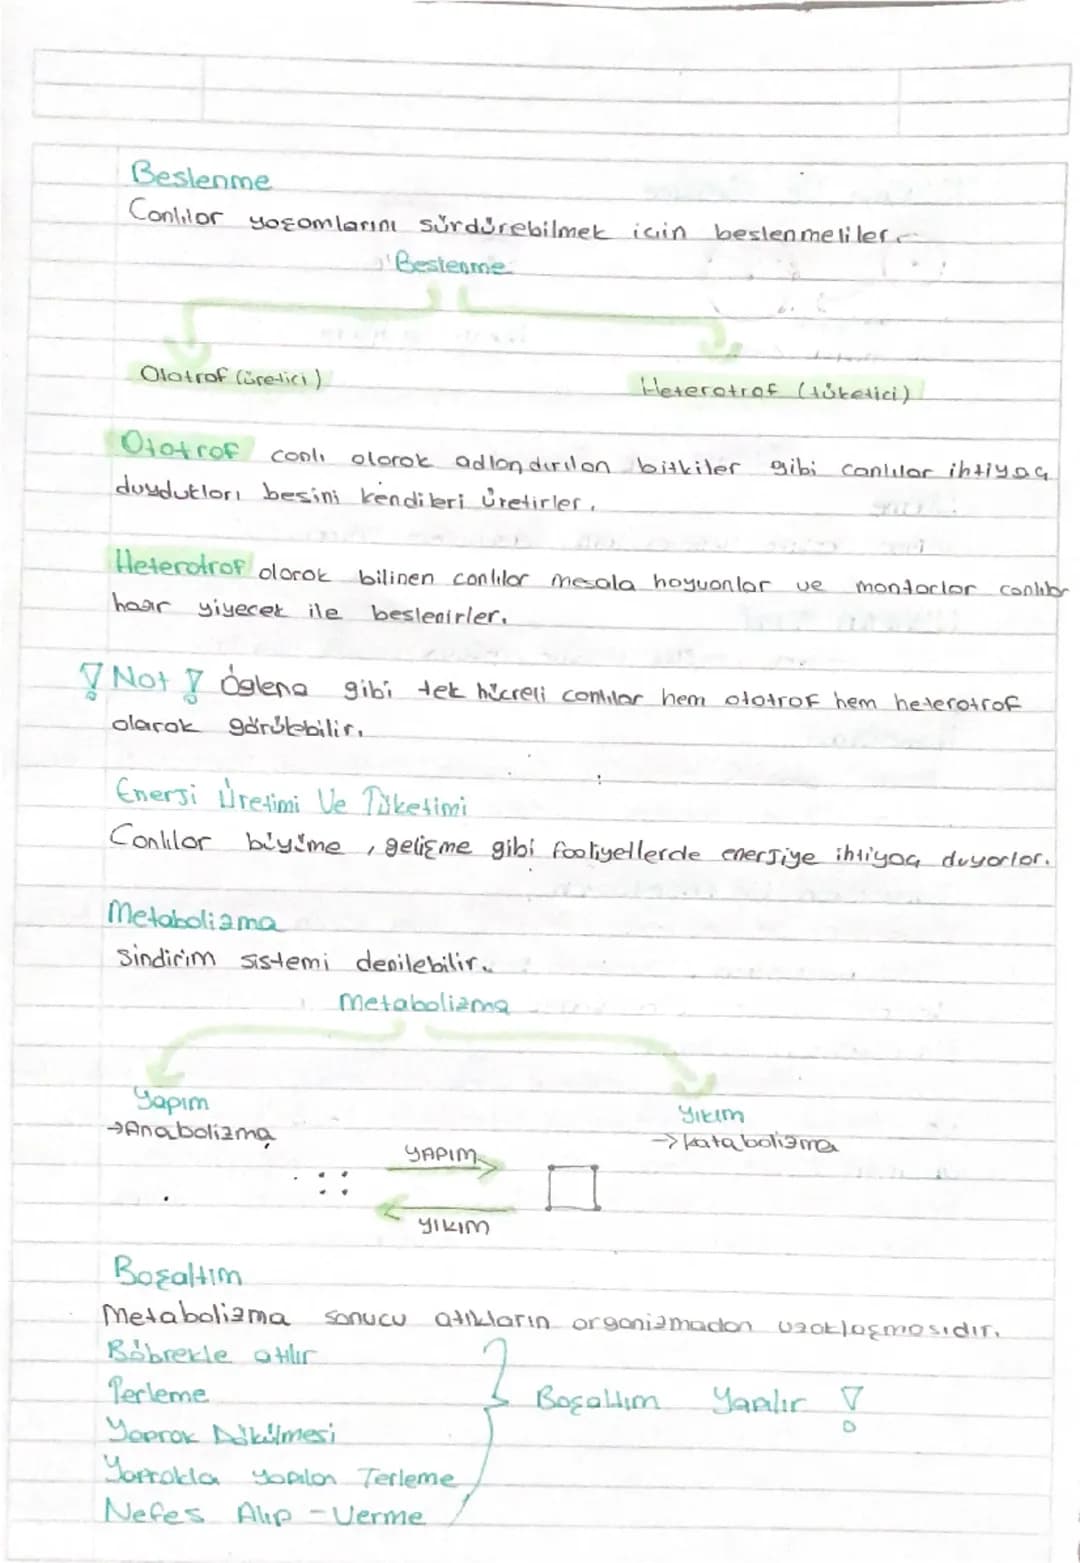 Beslenme
Canlılar yaşamlarını sürdürebilmek için beslenmeliler.
Beslenme
Ototrof (üretici)
Heterotrof (tüketici)
Ototrof canlı olarak adlandırılan bitkiler gibi canlılar ihtiyaç
duydukları besini kendileri üretirler.
Heterotrof olarak bilinen canlılar mesala hayvanlar ve mantarlar canlılar
hazır yiyecek ile beslenirler.
! Not ! Öglena gibi tek hücreli canlılar hem ototrof hem heterotrof
olarak görülebilir.
Enerji Üretimi Ve Tüketimi
Canlılar büyüme, gelişme gibi faaliyetlerde enerjiye ihtiyaç duyarlar.
Metabolizma
Sindirim sistemi denilebilir.
Metabolizma
Yapım
→Anabolizma
Yıkım
→Katabolizma
YAPIM
YIKIM
Boşaltım
Metabolizma sonucu atıkların organizmadan uzaklaşmasıdır.
Böbrekle atılır
Terleme
Yaprak Dökülmesi
Yaprakla yapılan Terleme
Nefes Alıp - Verme
Boşaltım Yapılır !